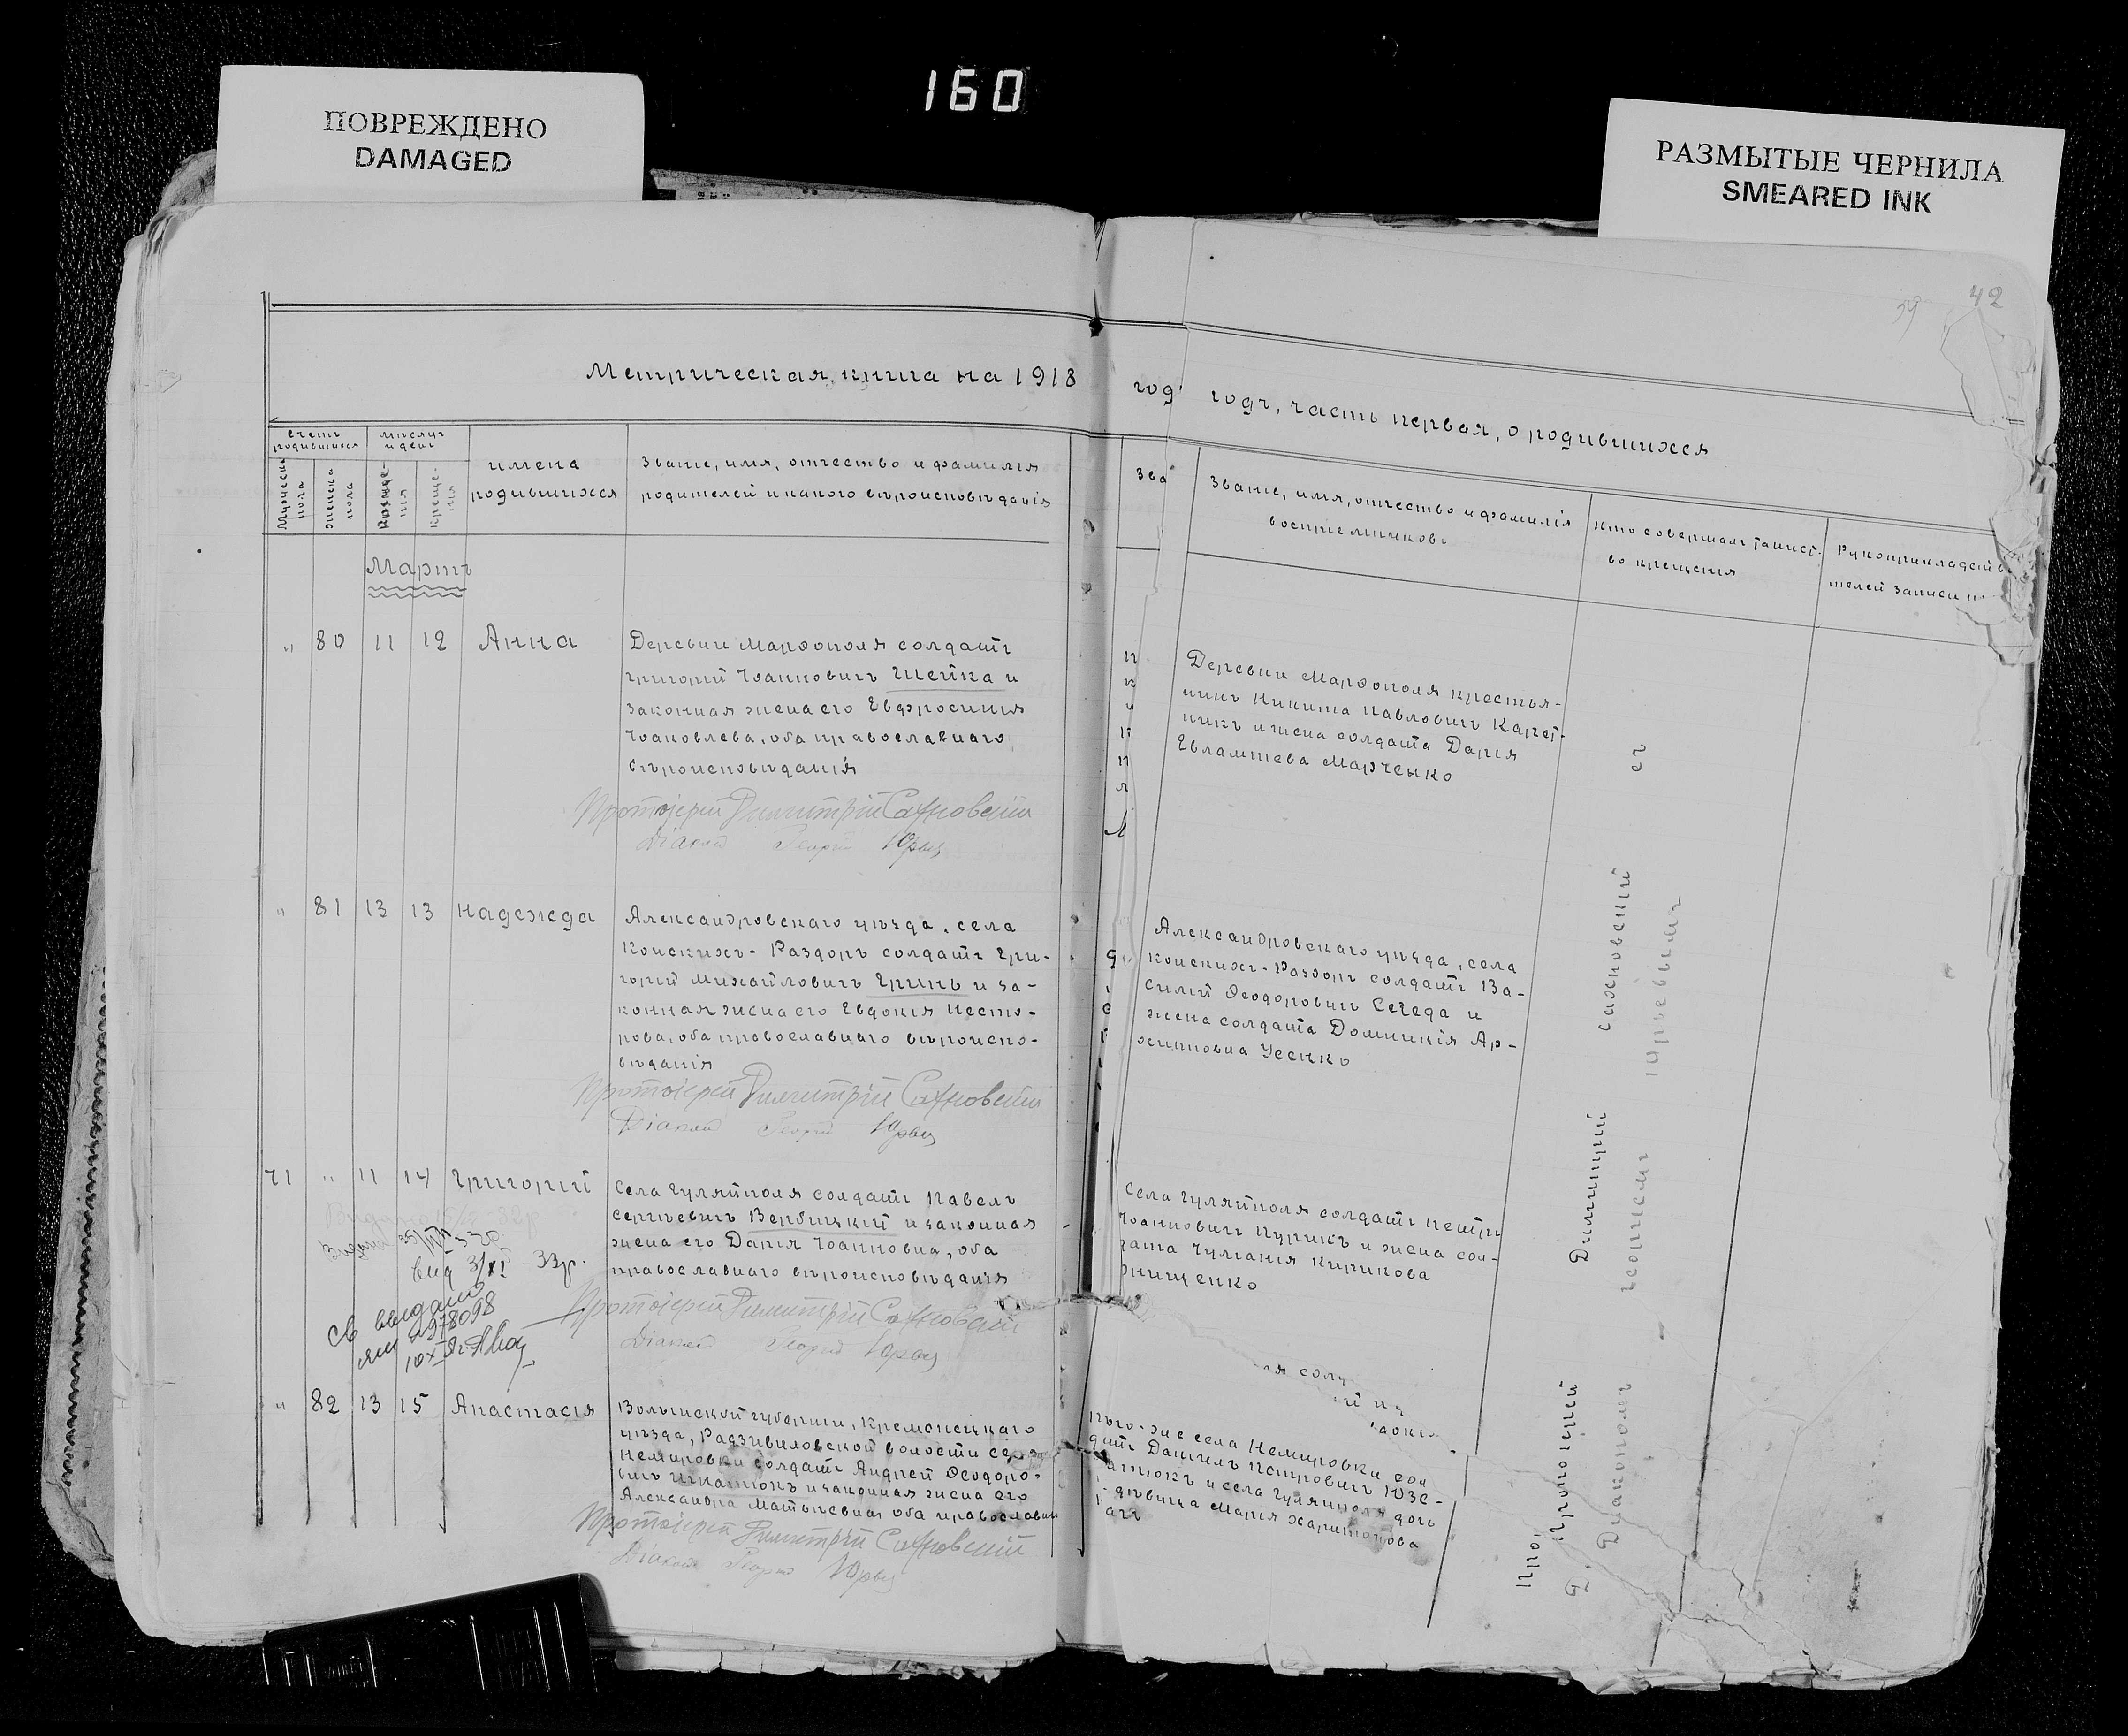 160
ПОВРЕЖДЕНО
DAMAGED
РАЗМЫТЫЕ ЧЕРНИЛА
SMEARED INK
42
Метрическая книга на 1918
год
годъ, часть первая, о родившихся
счетъ родившихся
мѣсяцъ и день
Мужеска пола
женска пола
Рожде-
нія
креще-
нія
имена
родившихся
Званіе, имя, отчество и фамилія
родителей и какого вѣроисповѣданія
Зва
Званіе, имя, отчество и фамилія
воспріемниковъ
Кто совершалъ таинст-
во крещенія
Рукоприкладств
телей записи
Мартъ
" 80 11 12 Анна
Деревни Марфополя солдатъ
Григорій Іоанновичъ Шейка и
законная жена его Евфросинія
Іаковлева, оба православнаго
вѣроисповѣданія
Протоіерей Димитрій Сахновскій
Діаконъ Георгій Юрьев
Деревни Марфополя крестья-
нинъ Никита Павловичъ Карет-
никъ и жена солдата Дарія
Евлампіева Марченко
" 81 13 13 Надежда
Александровскаго уѣзда, села
Конскихъ-Раздоръ солдатъ Гри-
горій Михайловичъ Гринь и за-
конная жена его Евдокія Несто-
рова, оба православнаго вѣроиспо-
вѣданія
Протоіерей Димитрій Сахновскій
Діаконъ Георгій Юрьев
Александровскаго уѣзда, села
Конскихъ-Раздоръ солдатъ Ва-
силій Феодоровичъ Сегеда и
жена солдата Домникія Ар-
хипповна Усенко
71 " 11 14 Григорій
Села Гуляйполя солдатъ Павелъ
Сергѣевичъ Вербицкій и законная
жена его Дарія Іоанновна, оба
православнаго вѣроисповѣданія
Протоіерей Димитрій Сахновскій
Діаконъ Георгій Юрьев
выд 3/XI 33р.
Св выдано
Села Гуляйполя солдатъ Петръ
Іоанновичъ Пурикъ и жена сол-
дата Іуліанія Кирикова
нищенко
" 82 13 15 Анастасія
Волынской губерніи, Кременецкаго
уѣзда, Радзивиловской волости села
Немировки солдатъ Андрей Феодоро-
вичъ Игнатюкъ и законная жена его
Александра Матвѣевна, оба православн
Протоіерей Димитрій Сахновскій
Діаконъ Георгій Юрьев
того-же села Немировки сол
датъ Даніилъ Петровичъ Юзе-
и села Гуляйполя дочь
дѣвица Марія Харитонова
Протоіерей Димитрій Сахновскій съ
Діакономъ Георгіемъ Юрьевымъ